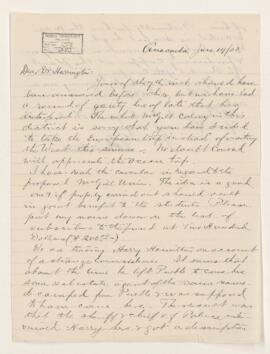 Anaconda, June 14/08.
Dear Dr Harrington:
Yours of the inst. should have
been answered before this, but we have had
a round of gaiety here of late that has
interfered. The whole McGill Colony in this
district is sorry that you have decided
to take the European trip instead of visiting
the West this summer. No doubt Conrad
will appreciate the ocean trip.
I have read the circular in regard to the
proposed McGill Union. The idea is a good
one & if properly carried out should result
in great benefit to the students. Please
put my name down on the list of
subscribers to the fund at Two Hundred
Dollars ($200.00).
We are teasing Harry Hamilton on account
of a strange coincidence. It seems that
about the time he left Pueblo to come here
some real estate agent of the same name
decamped from Pueblo & was supposed
to have come here. The result was
that the sheriff & chief of Police
Harry here & got a description